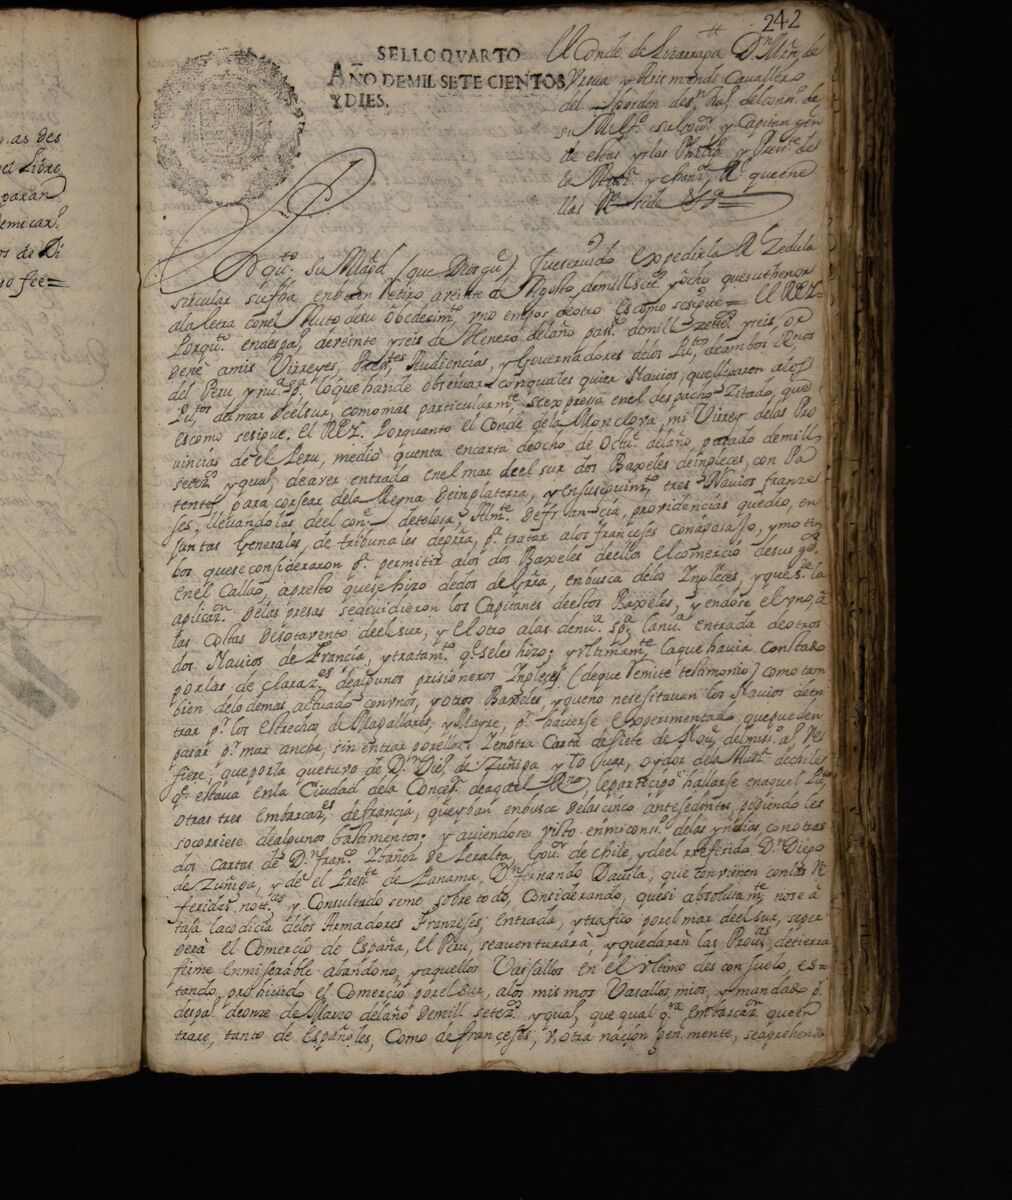 242
SELLO QVARTO
AÑO DE MIL SETECIENTOS
Y DIES.
El Conde de Lizarraga Dn. Min. de
Vrsua y Arismendi Cavallero
del horden de sn. tiago del conso. de
su Magd. su Govor. y Capitan gen
de estas yslas Philipas. y Presite. de
la Audia. y chanza. Rl. que en e
llas Reside &a
Por qto. su Magd. (que Dios ge.) fue servido expedir la Rl. Zedula
sircular su fha en buen retiro a veinte de Agosto de mill setezs. y ocho que su thenor
a la letra con el Auto de su obedecimto. y no en pos de otro es como se sigue = El REZ =
Por qto. en despo. de veinte y seis de Henero del año pasdo. de mill zettezs. y seis or
dené a mis Virreyes, Pressites. Audiencias, y Governadores de los Puertos, de ambos Reynos
del Peru, y nua. spa. lo que han de observar con quales quier Navios, que llegaren a los
Puertos del mar de el sur, como mas particularmte. se expressa en el despacho zitado, que
es como se sigue. El REZ. Por quanto el Conde de la Monclova, mi Virrey de las Pro
vincias de el Peru, medio quenta en carta de ocho de Octue. del año, pasado de mill
setezs. y qual, de aver entrado en el mar de el sur dos Baxeles de ingleces, con Pa
tente, para corsear de la Reyna de inglaterra, y en su seguimto. tres Navios franze
ses, llevandolas de el conde de tolosa, Almte. de francia, providencias que dio, en
juntas Generales, de tribunales de pra. tratar a los franceses con agasajo, y moti
bos que se consideraron pa. permitir a los dos Baxeles de ellos el comercio de sus gens.
en el Callao, apresto que se hizo de dos de Gra. en busca de los Ingleces, y que sre. la
aplicazn. de las presas se dividieron los Capitanes de estos Baxeles, yendose el vno, a
las costas de sotavento de el sur, y el otro a las de nua. spa. la nua. entrada de otros
dos Navios de Francia, y tratamto. qe. se les hizo; y vltimamte. la que havia constado
por las de clarazes. de algunos prisioneros Ingleses (de que remite testimonio) como tam
bien de lo demas, actuado con vnos, y otros Baxeles, y que no nesesitavan los Navios de en
trar pr. los estrechos de Magallanes, y Mayre, pr. haverse experimentado que pueden
pasar pr. mar ancha, sin entrar por ellos. Y en otra Carta de siete de Nove. del mismo. año Re
fiere, que por la que tuvo de Dn. Diego de Zuñiga y tobar, oydor de la Auda. de chile
qe. estava en la Ciudad de la Concepn. de aquel Rno. le participo hallarse en aquel Puerto
otras tres embarcazes. de francia, que yban en busca de las cinco antesedentes, pidiendo les
socorriese de algunos bastimentos; y aviendose visto en mi conso. de las yndias, con otras
dos cartas de Dn. franco. Ybañez de Peralta, Govor. de Chile, y de el referido Dn. Diego
de Zuñiga, y de el Presite. de Panama, Dn. fernando Davila, que convienen con las re
feridas nottas. y Consultado seme sobre todo, considerando, que si absolutamte. no se a
taja la codicia de los Armadores Franceses, entrada, y trafico por el mar de el sur, se per
derà el Comercio de España, el Peru, se aventurarà, y quedarán las Provas. de tierra
firme en miserable abandono, y aquellos Vassallos en el vltimo desconsuelo, es=
tando, prohivido el Comercio por el sur, a los mismos Vasallos mios, y mandado pr.
despo. de onze de Marzo del año de mill setezs. y qual, que qual qra. embarcazn. que en
trare, tanto de Españoles, como de franceses, v otra nación gen mente, se aprehenda